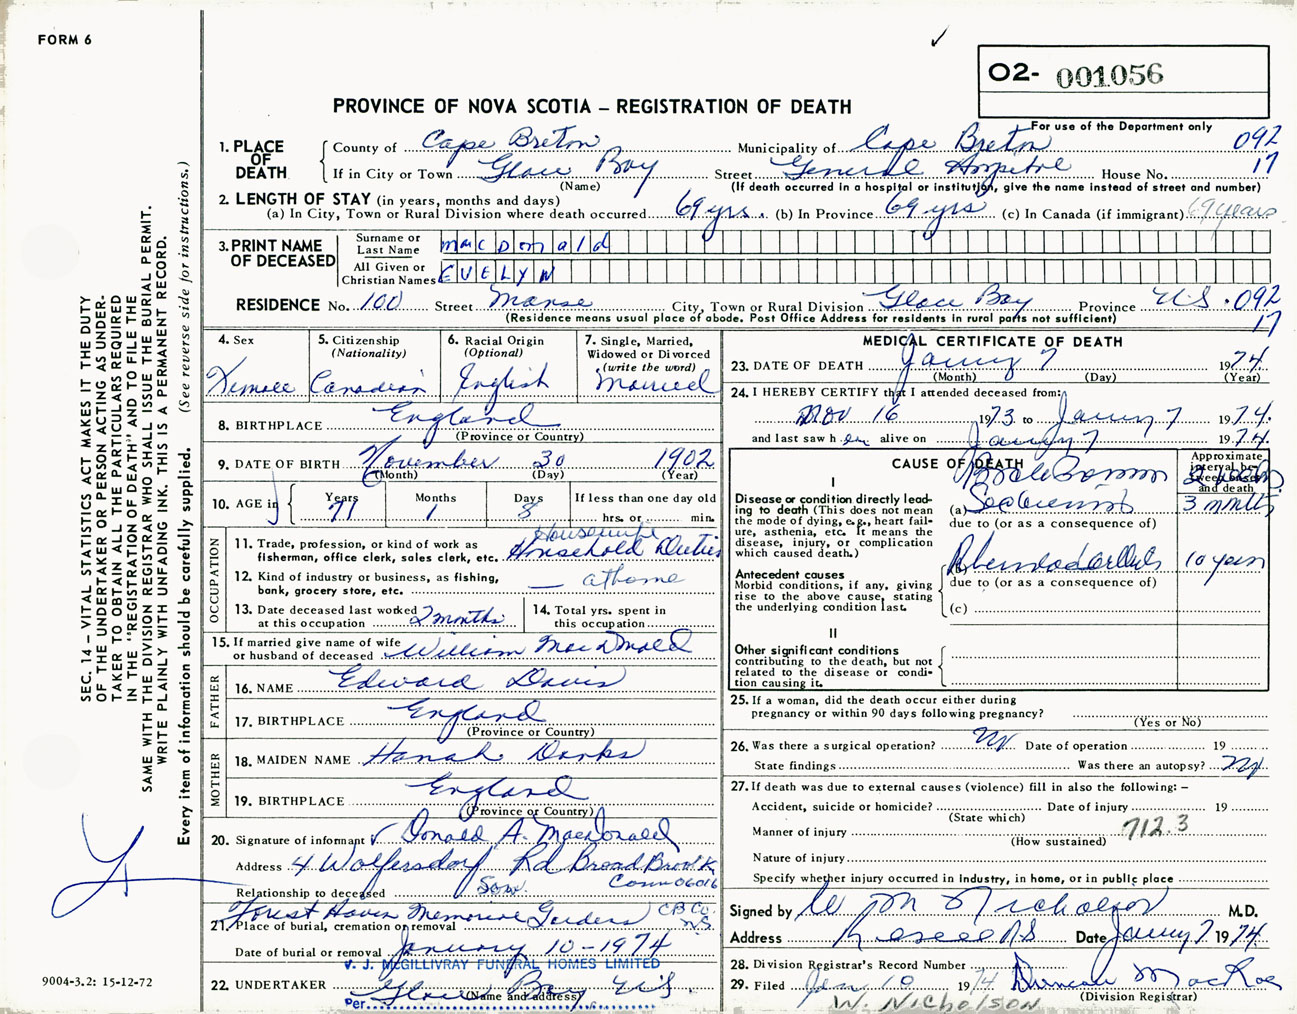 FORM 6
✓
O2- 001056
PROVINCE OF NOVA SCOTIA – REGISTRATION OF DEATH
For use of the Department only
1. PLACE OF DEATH
County of Cape Breton Municipality of Cape Breton 092
If in City or Town Glace Bay Street General Hospital House No. 17
(Name) (If death occurred in a hospital or institution, give the name instead of street and number)
2. LENGTH OF STAY (in years, months and days)
(a) In City, Town or Rural Division where death occurred 69 yrs. (b) In Province 69 yrs (c) In Canada (if immigrant) 69 years
3. PRINT NAME OF DECEASED
Surname or Last Name macDonald
All Given or Christian Names EVELYN
RESIDENCE No. 100 Street Manse City, Town or Rural Division Glace Bay Province N.S. 092
(Residence means usual place of abode. Post Office Address for residents in rural parts not sufficient) 17
4. Sex Female
5. Citizenship (Nationality) Canadian
6. Racial Origin (Optional) English
7. Single, Married, Widowed or Divorced (write the word) Married
8. BIRTHPLACE England
(Province or Country)
9. DATE OF BIRTH November 30 1902
(Month) (Day) (Year)
10. AGE in Years 71 Months 1 Days 8 If less than one day old hrs. or min.
OCCUPATION
11. Trade, profession, or kind of work as fisherman, office clerk, sales clerk, etc. Housewife Household Duties
12. Kind of industry or business, as fishing, bank, grocery store, etc. — at home
13. Date deceased last worked at this occupation 2 months
14. Total yrs. spent in this occupation
15. If married give name of wife or husband of deceased William MacDonald
FATHER
16. NAME Edward Davis
17. BIRTHPLACE England
(Province or Country)
MOTHER
18. MAIDEN NAME Hanah Danks
19. BIRTHPLACE England
(Province or Country)
20. Signature of informant ✓ Donald A. MacDonald
Address 4 Wolfersdorf Rd Broad Brook
Conn 06016
Relationship to deceased Son.
21. Place of burial, cremation or removal Forest Haven Memorial Gardens CB Co. N.S.
Date of burial or removal January 10-1974
V. J. McGILLIVRAY FUNERAL HOMES LIMITED
22. UNDERTAKER Glace Bay N.S.
(Name and address)
Per
MEDICAL CERTIFICATE OF DEATH
23. DATE OF DEATH January 7 1974
(Month) (Day) (Year)
24. I HEREBY CERTIFY that I attended deceased from:
Nov 16 1973 to January 7 1974.
and last saw her alive on January 7 1974.
CAUSE OF DEATH
Approximate interval between onset and death
I
Disease or condition directly leading to death (This does not mean the mode of dying, e.g., heart failure, asthenia, etc. It means the disease, injury, or complication which caused death.)
(a) 3 months
due to (or as a consequence of)
Antecedent causes
Morbid conditions, if any, giving rise to the above cause, stating the underlying condition last.
(b) Rheumatoid Arthritis 10 years
due to (or as a consequence of)
(c)
II
Other significant conditions
contributing to the death, but not related to the disease or condition causing it.
25. If a woman, did the death occur either during pregnancy or within 90 days following pregnancy?
(Yes or No)
26. Was there a surgical operation? No Date of operation 19
State findings Was there an autopsy? No
27. If death was due to external causes (violence) fill in also the following: –
Accident, suicide or homicide? Date of injury 19
(State which)
Manner of injury 712.3
(How sustained)
Nature of injury
Specify whether injury occurred in industry, in home, or in public place
Signed by W M Nicholson M.D.
Address N.S. Date January 7 1974.
28. Division Registrar's Record Number
29. Filed Jan 10 1974 Duncan MacRae
(Division Registrar)
W. NICHOLSON
SEC. 14 – VITAL STATISTICS ACT MAKES IT THE DUTY
OF THE UNDERTAKER OR PERSON ACTING AS UNDER-
TAKER TO OBTAIN ALL THE PARTICULARS REQUIRED
IN THE "REGISTRATION OF DEATH" AND TO FILE THE
SAME WITH THE DIVISION REGISTRAR WHO SHALL ISSUE THE BURIAL PERMIT.
WRITE PLAINLY WITH UNFADING INK. THIS IS A PERMANENT RECORD.
Every item of information should be carefully supplied. (See reverse side for instructions.)
9004-3.2: 15-12-72